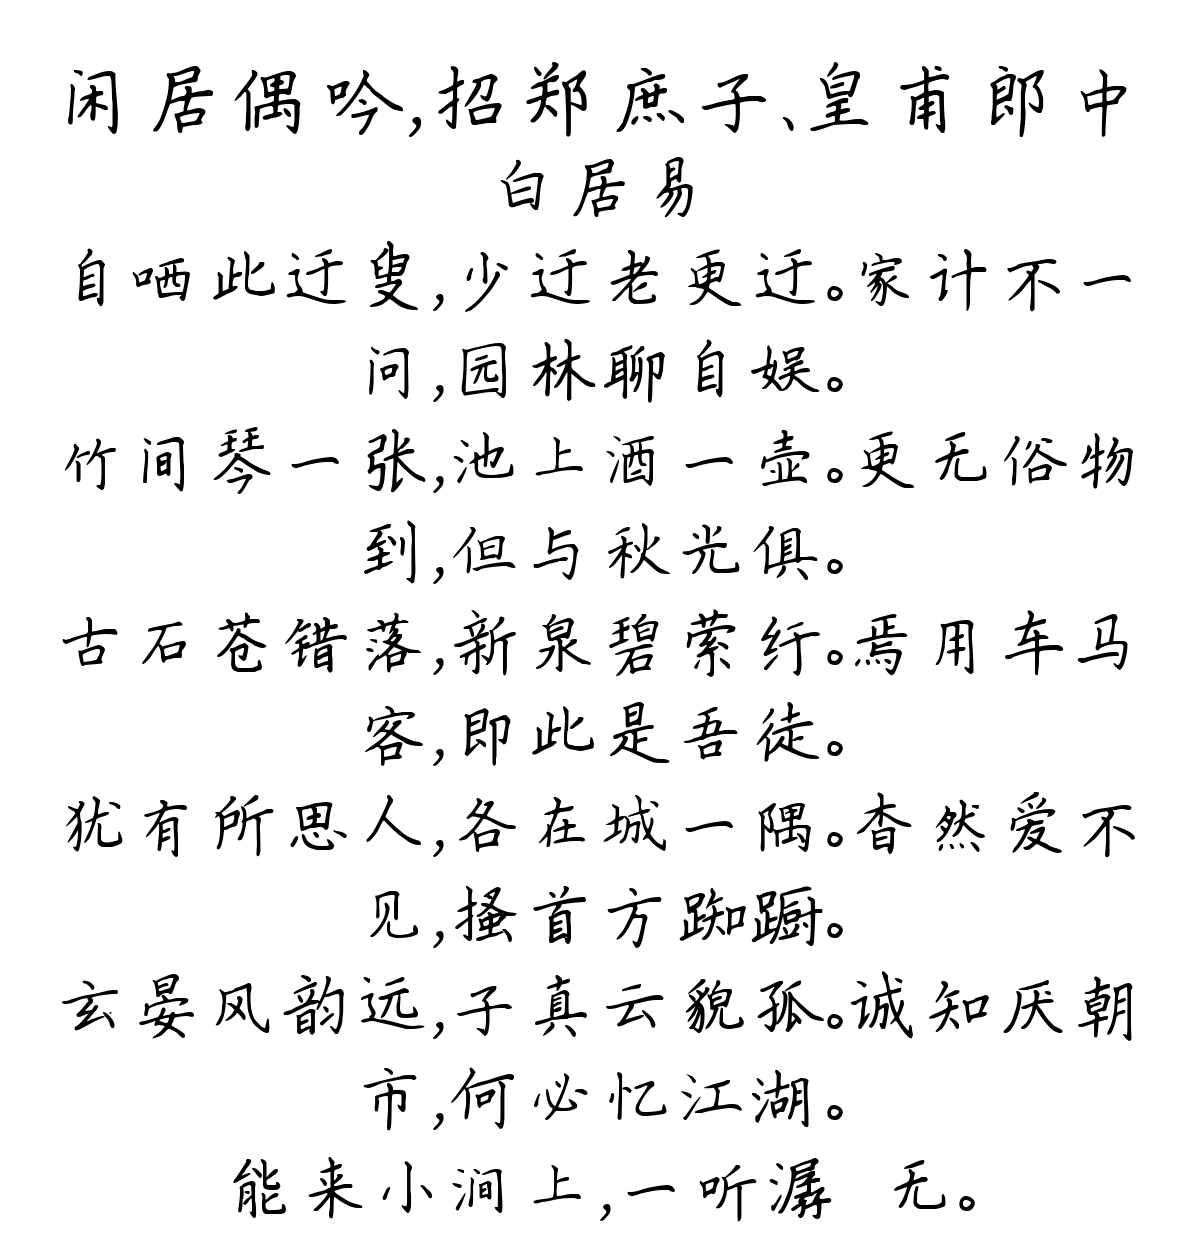 闲居偶吟,招郑庶子、皇甫郎中
白居易
自哂此迂叟,少迂老更迂。家计不一
问,园林聊自娱。
竹间琴一张,池上酒一壶。更无俗物
到,但与秋光俱。
古石苍错落,新泉碧萦纡。焉用车马
客,即此是吾徒。
犹有所思人,各在城一隅。杳然爱不
见,搔首方踟蹰。
玄晏风韵远,子真云貌孤。诚知厌朝
市,何必忆江湖。
能来小涧上,一听潺 无。